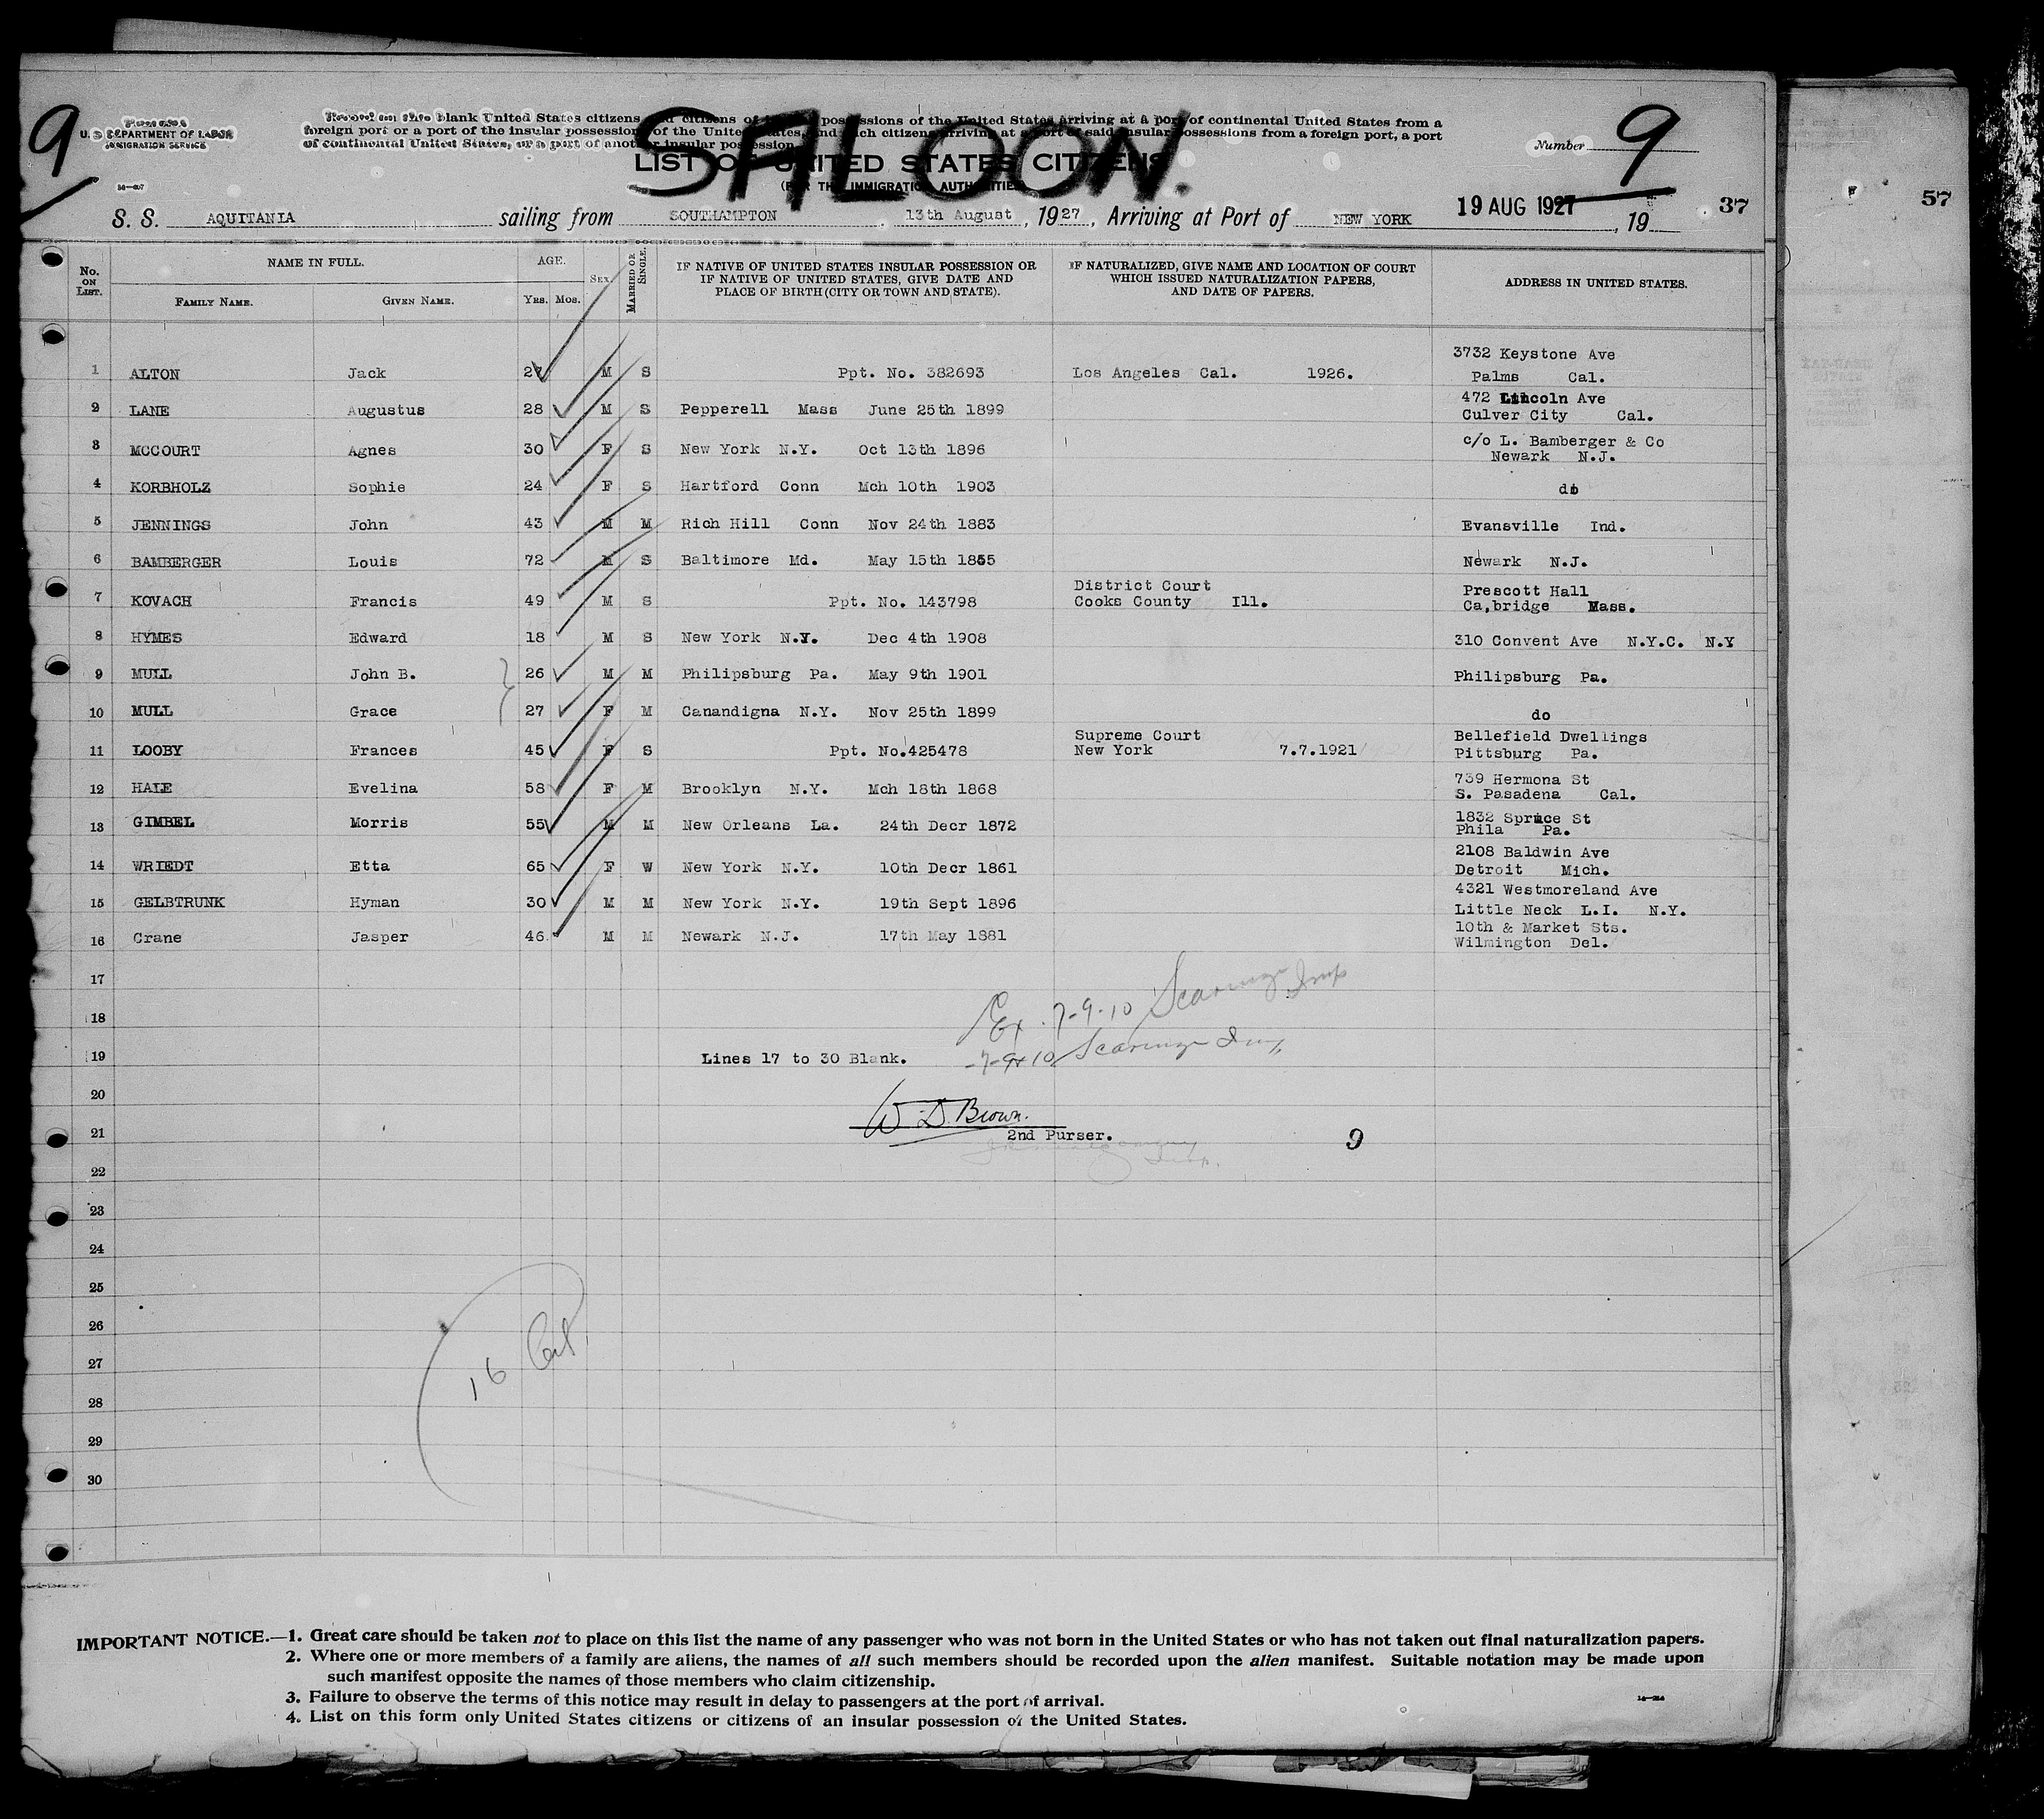 9
U. S. DEPARTMENT OF LABOR
IMMIGRATION SERVICE
blank United States citizens and citizens of possessions of the United States arriving at a port of continental United States from a
foreign port or a port of the insular possessions of the United States, and such citizens arriving at a port of said insular possessions from a foreign port, a port
of continental United States, or a port of another insular possession.
SALOON.
LIST OF UNITED STATES CITIZENS
(FOR THE IMMIGRATION AUTHORITIES)
Number 9
S. S. AQUITANIA sailing from SOUTHAMPTON, 13th August, 1927, Arriving at Port of NEW YORK 19 AUG 1927, 19 37
57
No. ON LIST. NAME IN FULL. FAMILY NAME. GIVEN NAME. AGE. YRS. MOS. SEX. MARRIED OR SINGLE. IF NATIVE OF UNITED STATES INSULAR POSSESSION OR IF NATIVE OF UNITED STATES, GIVE DATE AND PLACE OF BIRTH (CITY OR TOWN AND STATE). IF NATURALIZED, GIVE NAME AND LOCATION OF COURT WHICH ISSUED NATURALIZATION PAPERS, AND DATE OF PAPERS. ADDRESS IN UNITED STATES.
1 ALTON Jack 27 M S Ppt. No. 382693 Los Angeles Cal. 1926. 3732 Keystone Ave Palms Cal.
2 LANE Augustus 28 M S Pepperell Mass June 25th 1899 472 Lincoln Ave Culver City Cal.
3 MCCOURT Agnes 30 F S New York N.Y. Oct 13th 1896 c/o L. Bamberger & Co Newark N.J.
4 KORBHOLZ Sophie 24 F S Hartford Conn Mch 10th 1903 do
5 JENNINGS John 43 M M Rich Hill Conn Nov 24th 1883 Evansville Ind.
6 BAMBERGER Louis 72 M S Baltimore Md. May 15th 1855 Newark N.J.
7 KOVACH Francis 49 M S Ppt. No. 143798 District Court Cooks County Ill. Prescott Hall Ca,bridge Mass.
8 HYMES Edward 18 M S New York N.Y. Dec 4th 1908 310 Convent Ave N.Y.C. N.Y
9 MULL John B. 26 M M Philipsburg Pa. May 9th 1901 Philipsburg Pa.
10 MULL Grace 27 F M Canandigna N.Y. Nov 25th 1899 do
11 LOOBY Frances 45 F S Ppt. No.425478 Supreme Court New York 7.7.1921 Bellefield Dwellings Pittsburg Pa.
12 HALE Evelina 58 F M Brooklyn N.Y. Mch 18th 1868 739 Hermona St S. Pasadena Cal.
13 GIMBEL Morris 55 M M New Orleans La. 24th Decr 1872 1832 Spruce St Phila Pa.
14 WRIEDT Etta 65 F W New York N.Y. 10th Decr 1861 2108 Baldwin Ave Detroit Mich.
15 GELBTRUNK Hyman 30 M M New York N.Y. 19th Sept 1896 4321 Westmoreland Ave Little Neck L.I. N.Y.
16 Crane Jasper 46 M M Newark N.J. 17th May 1881 10th & Market Sts. Wilmington Del.
17
Ex. 7-9-10
18
19 Lines 17 to 30 Blank.
20
W D. Brown.
21 2nd Purser. 9
22
23
24
25
26
27
16
28
29
30
IMPORTANT NOTICE.—1. Great care should be taken not to place on this list the name of any passenger who was not born in the United States or who has not taken out final naturalization papers.
2. Where one or more members of a family are aliens, the names of all such members should be recorded upon the alien manifest. Suitable notation may be made upon
such manifest opposite the names of those members who claim citizenship.
3. Failure to observe the terms of this notice may result in delay to passengers at the port of arrival.
4. List on this form only United States citizens or citizens of an insular possession of the United States.